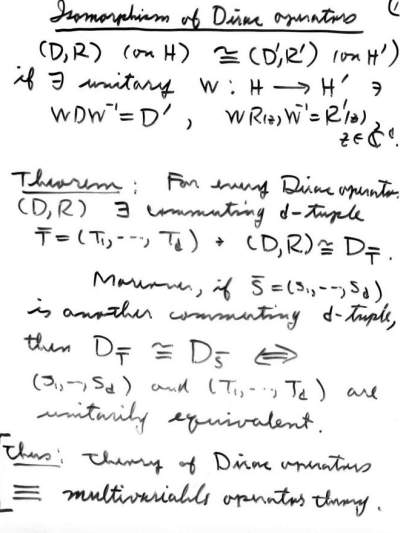 Isomorphism of Dirac operators (1
(D,R) (on H) ≅ (D',R') (on H')
if ∃ unitary W : H ⟶ H' ∋
WDW⁻¹ = D' , WR(z)W⁻¹ = R'(z)
z ∈ ℂᵈ.
Theorem : For every Dirac operator
(D,R) ∃ commuting d-tuple
T̄ = (T₁, ---, T_d) + (D,R) ≅ D_T̄ .
Moreover, if S̄ = (S₁, --, S_d)
is another commuting d-tuple,
then D_T̄ ≅ D_S̄ ⟺
(S₁, --, S_d) and (T₁, --, T_d) are
unitarily equivalent.
Thus: theory of Dirac operators
≡ multivariable operator theory.